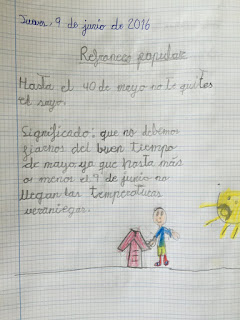 Jueves, 9 de junio de 2016
Refranero popular
Hasta el 40 de mayo no te quites
el sayo.
Significado: que no debemos
fiarnos del buen tiempo
de mayo ya que hasta más
o menos el 9 de junio no
llegan las temperaturas
veraniegas.